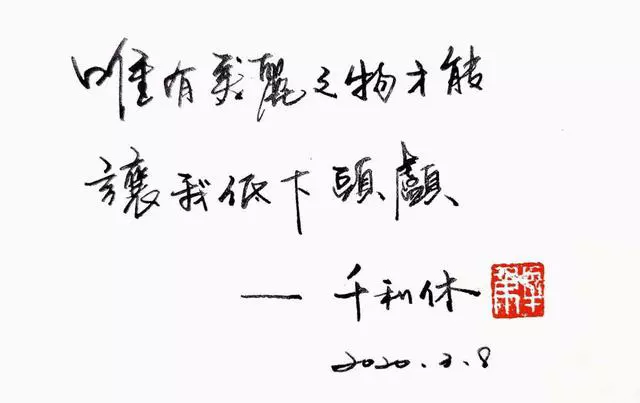 唯有美麗之物才能
讓我低下頭顱
— 千利休
2020.2.8